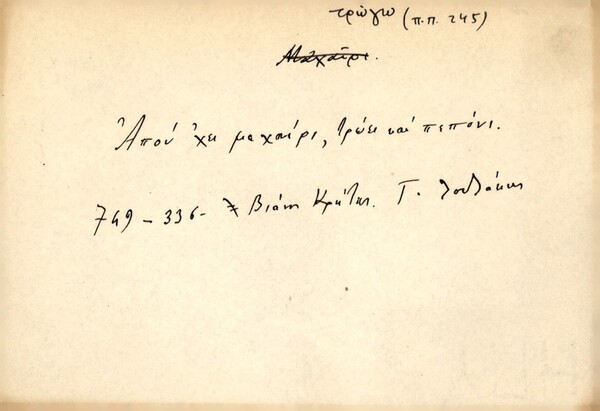 τρώγω (π.π. 245)
Μαχαίρι.
Ἀπού ἔχει μαχαίρι, τρώει καί πεπόνι.
749 – 336 - Βιάνν Κρήτης. Γ.